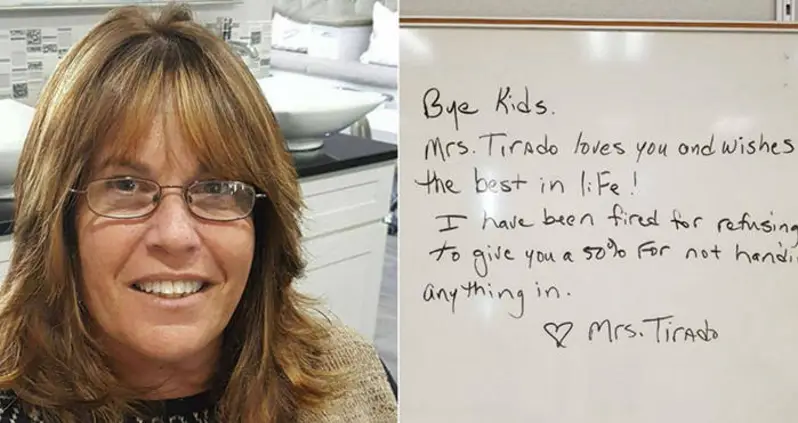 Bye Kids.
Mrs. Tirado loves you and wishes
the best in life!
I have been fired for refusing
to give you a 50% for not handi
anything in.
♡ Mrs. Tirado